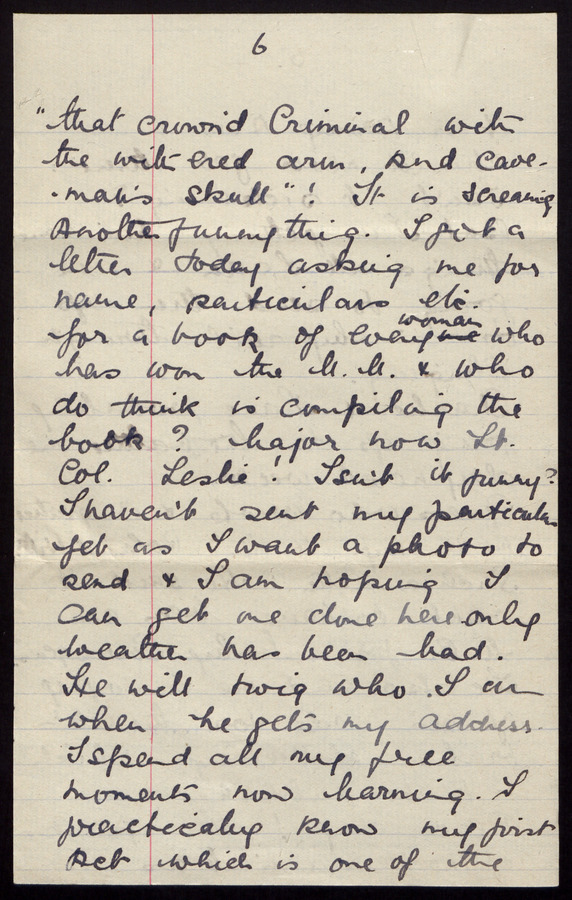 6
"that crown'd Criminal with
the withered arm, and cave-
-man's skull"! It is screaming
Another funny thing. I got a
letter today asking me for
name, particulars etc.
for a book of every woman who
has won the M.M. & who
do think is compiling the
book? Major now Lt.
Col. Leslie! Isn't it funny?
I haven't sent my particulars
yet as I want a photo to
send & I am hoping I
can get one done here only
weather has been bad.
He will twig who I am
when he gets my address.
I spend all my free
moments now learning. I
practically know my first
Act which is one of the